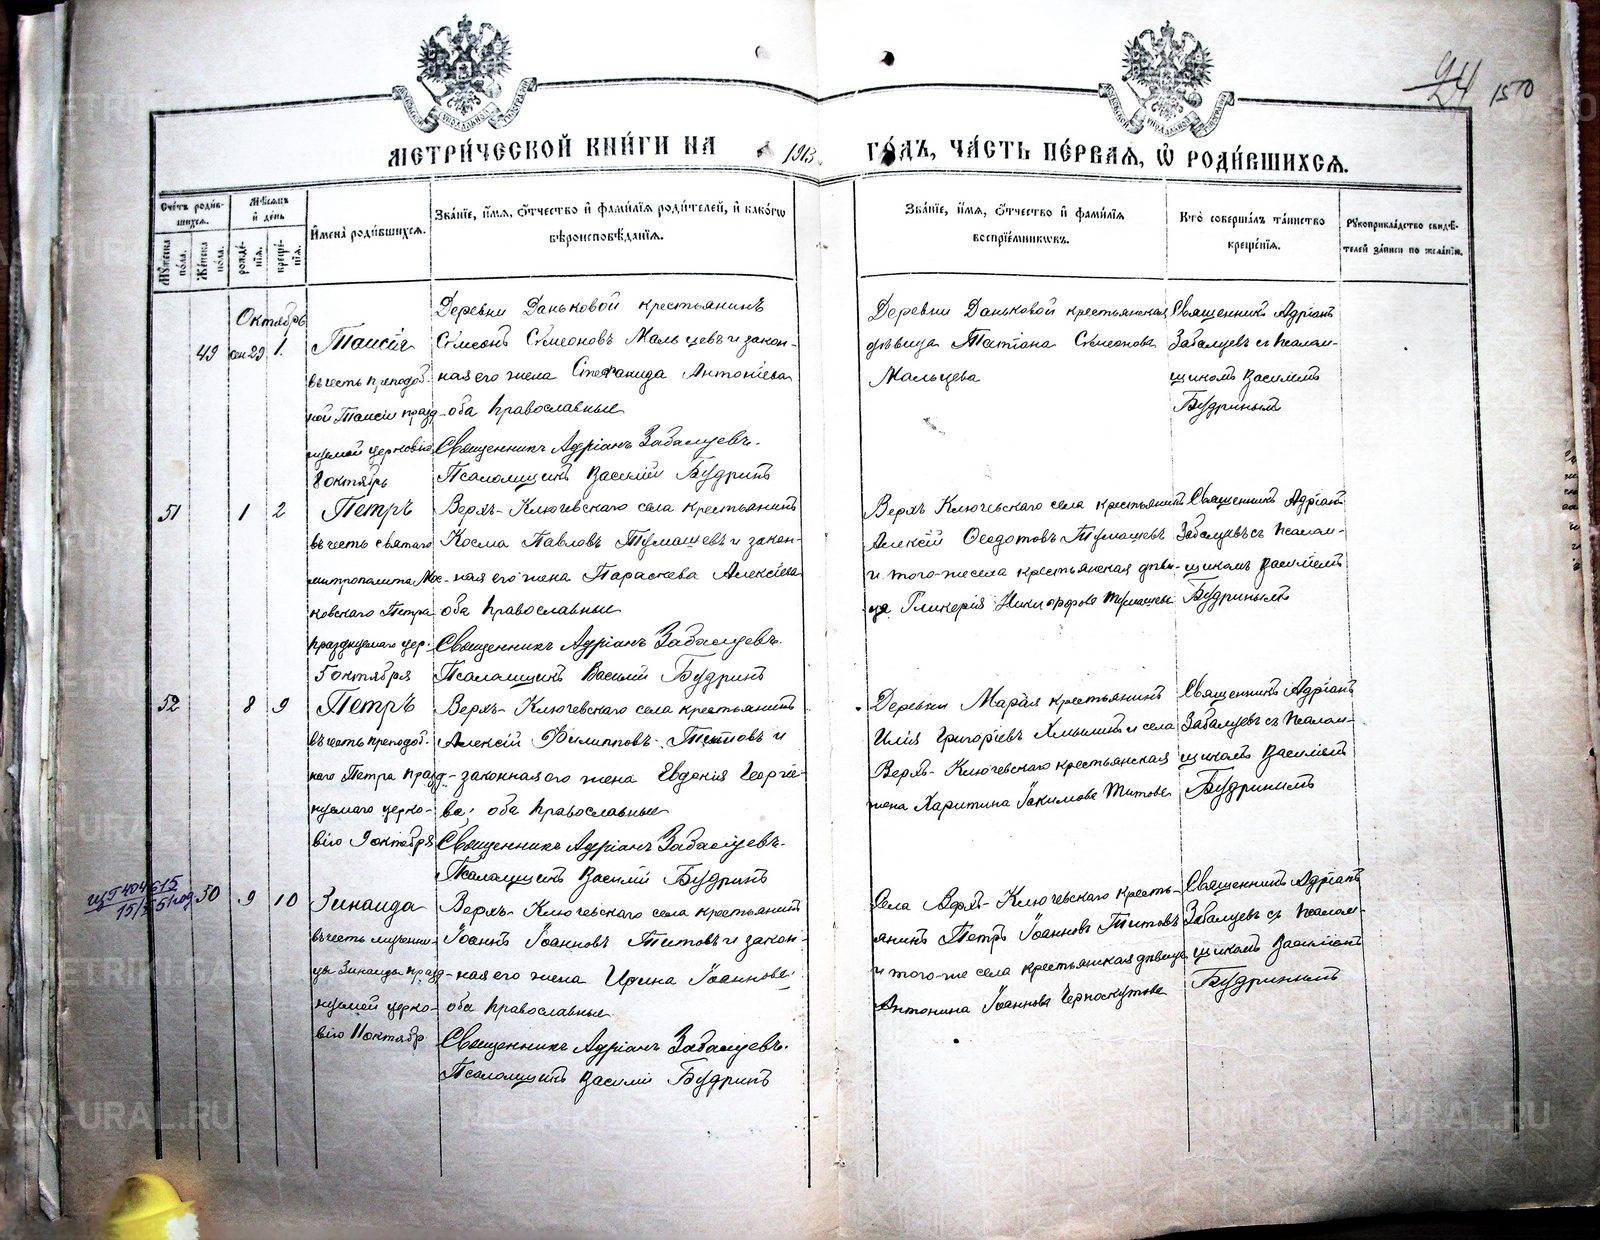 24 150
МЕТРИ́ЧЕСКОЙ КНИ́ГИ НА 1913 ГО́ДЪ, ЧА́СТЬ ПЕ́РВАЯ, Ѡ РОДИ́ВШИХСЯ.
Сче́тъ роди́вшихся.
Му́жеска по́ла.
Же́нска по́ла.
Мѣ́сяцъ и́ де́нь
рожде́нія.
креще́нія.
И́мена роди́вшихся.
Зва́ніе, и́мя, о́тчество и фами́лія роди́телей, и како́гѡ
вѣроисповѣ́данія.
Зва́ніе, и́мя, о́тчество и фами́лія
воспріе́мниковъ.
Кто̀ соверша́лъ та́инство
креще́нія.
Рукоприкла́дство свидѣ́-
телей за́писи по жела́нію.
Октябрь
49 сен 29 1.
Таисія
въ честь преподоб-
ной Таисіи празд-
нуемой церковію
8 октябрь
Деревни Даньковой крестьянинъ
Сѵмеонъ Сѵмеоновъ Мальцевъ и закон-
ная его жена Стефанида Антоніева
оба православные
Священникъ Адріанъ Забалуевъ.
Псаломщикъ Василій Будринъ
Деревни Даньковой крестьянская
дѣвица Татіана Сѵмеонова
Мальцева
Священникъ Адріанъ
Забалуевъ съ псалом-
щикомъ Василіемъ
Будринымъ
51 1 2
Петръ
въ честь святаго
митрополита Мос-
ковскаго Петра
празднуемаго цер.
5 октября
Верхъ-Ключевскаго села крестьянинъ
Косма Павловъ Тумашевъ и закон-
ная его жена Параскева Алексіева
оба православные
Священникъ Адріанъ Забалуевъ.
Псаломщикъ Василій Будринъ
Верхъ Ключевскаго села крестьянинъ
Алексій Ѳеодотовъ Тумашевъ
и того-же села крестьянская дѣви-
ца Гликерія Никифорова Тумашева
Священникъ Адріанъ
Забалуевъ съ псалом-
щикомъ Василіемъ
Будринымъ
52 8 9
Петръ
въ честь преподоб-
наго Петра празд-
нуемаго церко-
вію 9 октября
Верхъ-Ключевскаго села крестьянинъ
Алексій Филипповъ Титовъ и
законная его жена Евдокія Георгіе-
ва; оба православные
Священникъ Адріанъ Забалуевъ.
Псаломщикъ Василій Будринъ
Деревни Марая крестьянинъ
Илія Григоріевъ и села
Верхъ-Ключевскаго крестьянская
жена Харитина Іакимова Титова
Священникъ Адріанъ
Забалуевъ съ псалом-
щикомъ Василіемъ
Будринымъ
50 9 10
Зинаида
въ честь мученни-
цы Зинаиды празд-
нуемой церко-
вію 11 октябр
Верхъ-Ключевскаго села крестьянинъ
Іоаннъ Іоанновъ Титовъ и закон-
ная его жена Ирина Іоаннова;
оба православные
Священникъ Адріанъ Забалуевъ.
Псаломщикъ Василій Будринъ
Села Верхъ-Ключевскаго кресть-
янинъ Петръ Іоанновъ Титовъ
и того-же села крестьянская дѣвица
Антонина Іоаннова Черноскутова
Священникъ Адріанъ
Забалуевъ съ псалом-
щикомъ Василіемъ
Будринымъ